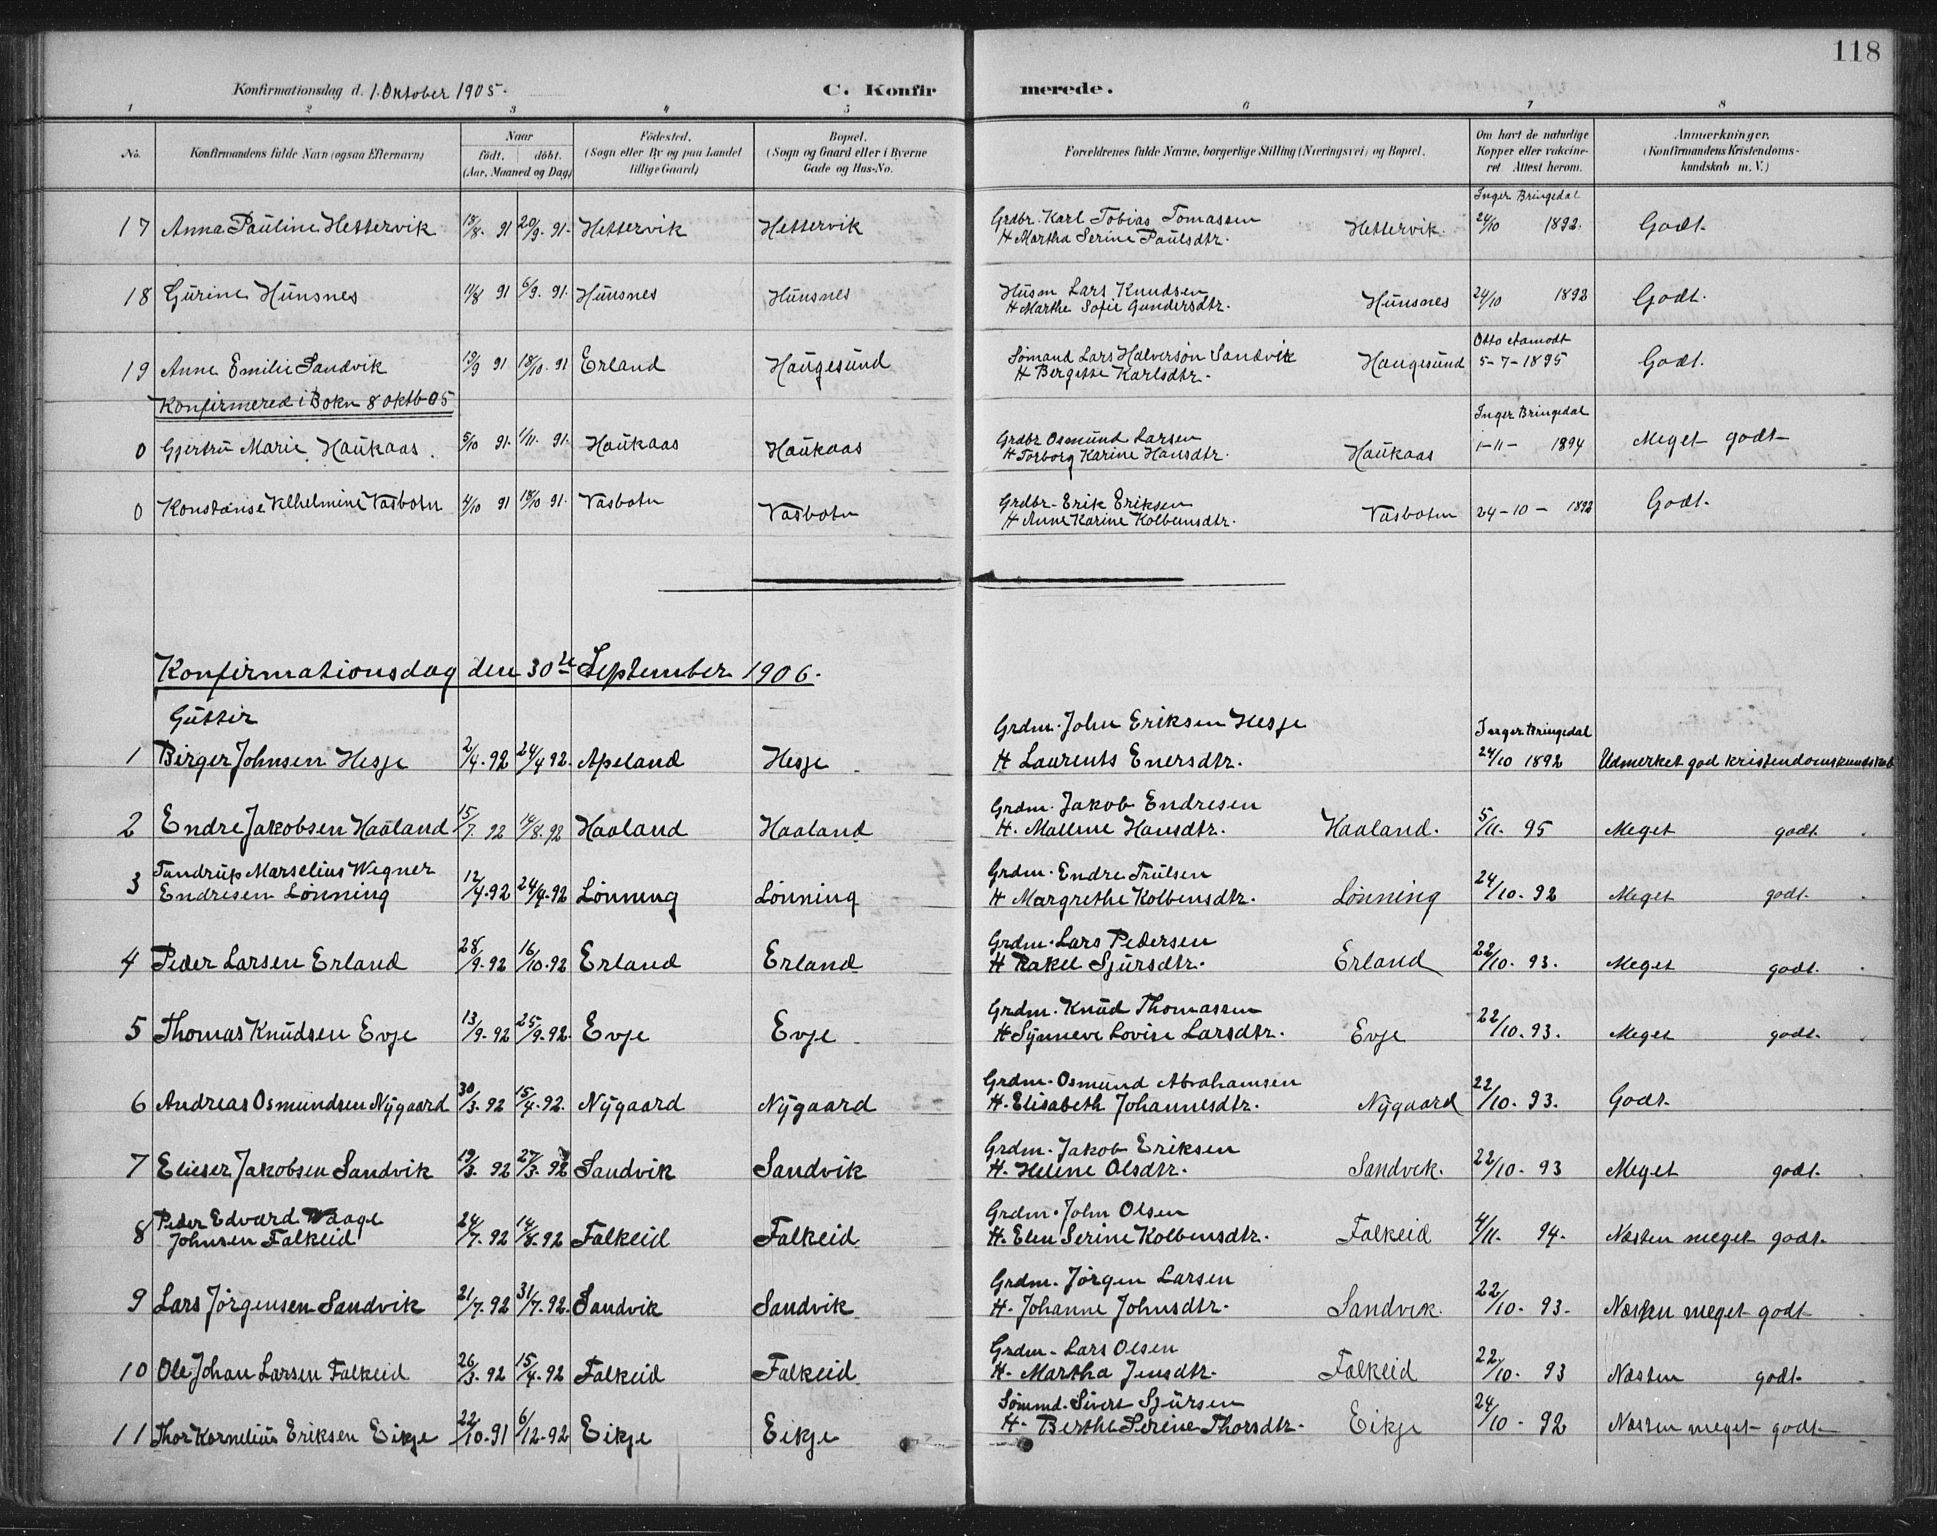 118
Konfirmationsdag d. 1. Oktober 1905.
C. Konfirmerede.
1 2 3 4 5 6 7 8
No. Konfirmandens fulde Navn (ogsaa Efternavn) Naar født. døbt. (Aar, Maaned og Dag) Fødested. (Sogn eller By og paa Landet tillige Gaard) Bopæl. (Sogn og Gaard eller i Byerne Gade og Hus-No. Forældrenes fulde Navne, borgerlige Stilling (Næringsvei) og Bopæl. Om havt de naturlige Kopper eller vakcineret Attest herom. Anmærkninger. (Konfirmandens Kristendomskundskab m. V.)
Inger Bringedal
17 Anna Pauline Hettervik 19/8 91 20/9. 91. Hettervik Hettervik Grdbr. Karl Tobias Tomassen Hettervik. 24/10 1892. Godt.
H Martha Serine Paulsdtr.
18 Gurine Hunsnes 11/8 91 6/9. 91. Hunsnes Hunsnes Husm Lars Knudsen Hunsnes 24/10 1892 Godt.
H Marthe Sofie Gundersdtr.
Otto Aamodt
19 Anne Emilie Sandvik 19/9 91 18/10. 91 Erland Haugesund Sømand Lars Halvorson Sandvik Haugesund 5-7-1895 Godt.
H Bergitte Karlsdtr.
Konfirmered i Bokn 8 oktb 05
Inger Bringedal
0 Gjertru Marie Haukaas. 5/10 91. 1/11. 91. Haukaas Haukaas Grdbr Osmund Larsen Haukaas 1-11- 1894 Meget godt
H Torborg Karine Hansdtr.
0 Konstanse Vilhelmine Vasbotn 4/10 91 18/10 91. Vasbotn Vasbotn Grdbr. Erik Eriksen Vasbotn 24-10- 1892 Godt.
H Anne Karine Kolbensdtr.
Konfirmationsdag den 30te September 1906.
Gutter
Inger Bringedal
1 Birger Johnsen Hesje 2/4. 92 24/4 92. Apeland Hesje Grdm. John Eriksen Hesje 24/10 1892 Udmerket god kristendomskundskab
H Laurents Enersdtr.
2 Endre Jakobsen Haaland 15/7. 92 14/8. 92 Haaland Haaland Grdm. Jakob Endresen Haaland. 5/11. 95 Meget godt.
H. Mallene Hansdtr.
3 Tandrup Marselius Wegner Endresen Lønning 12/4. 92 24/4. 92 Lønning Lønning Grdm. Endre Trulsen Lønning 24/10. 92 Meget godt.
H Margrethe Kolbensdtr.
4 Peder Larsen Erland 28/9. 92 16/10. 92 Erland Erland Grdm. Lars Pedersen Erland 22/10. 93. Meget godt.
H Rakel Sjursdtr.
5 Thomas Knudsen Evje 13/9. 92 25/9. 92. Evje Evje Grdm. Knud Thomassen Evje 22/10. 93. Meget godt.
H Synneve Lovise Larsdtr.
6 Andreas Osmundsen Nygaard 30/3. 92 15/4. 92. Nygaard Nygaard Grdm. Osmund Abrahamsen Nygaard 22/10. 93. Godt.
H. Elisabeth Johannesdtr.
7 Elieser Jakobsen Sandvik 19/3. 92 27/3. 92 Sandvik Sandvik Grdm. Jakob Eriksen Sandvik. 22/10. 93 Meget godt.
H. Helene Olsdtr.
8 Peder Edvard Waage Johnsen Falkeid 24/7. 92 14/8. 92 Falkeid Falkeid Grdm. John Olsen Falkeid 4/11. 94. Næsten meget godt.
H. Elen Serine Kolbensdtr.
9 Lars Jørgensen Sandvik 21/7. 92 31/7. 92. Sandvik Sandvik Grdm. Jørgen Larsen Sandvik. 22/10. 93. Næsten meget godt
H. Johanne Johnsdtr.
10 Ole Johan Larsen Falkeid 26/3. 92 15/4. 92 Falkeid Falkeid Grdm. Lars Olsen Falkeid 22/10. 93 Næsten godt.
H. Martha Jensdtr.
11 Thor Kornelius Eriksen Eikje 22/10. 91 6/12. 92 Eikje Eikje Sømmd. Sivert Sjursen Eikje 24/10. 92 Næsten meget godt
H. Berthe Serine Thorsdtr.